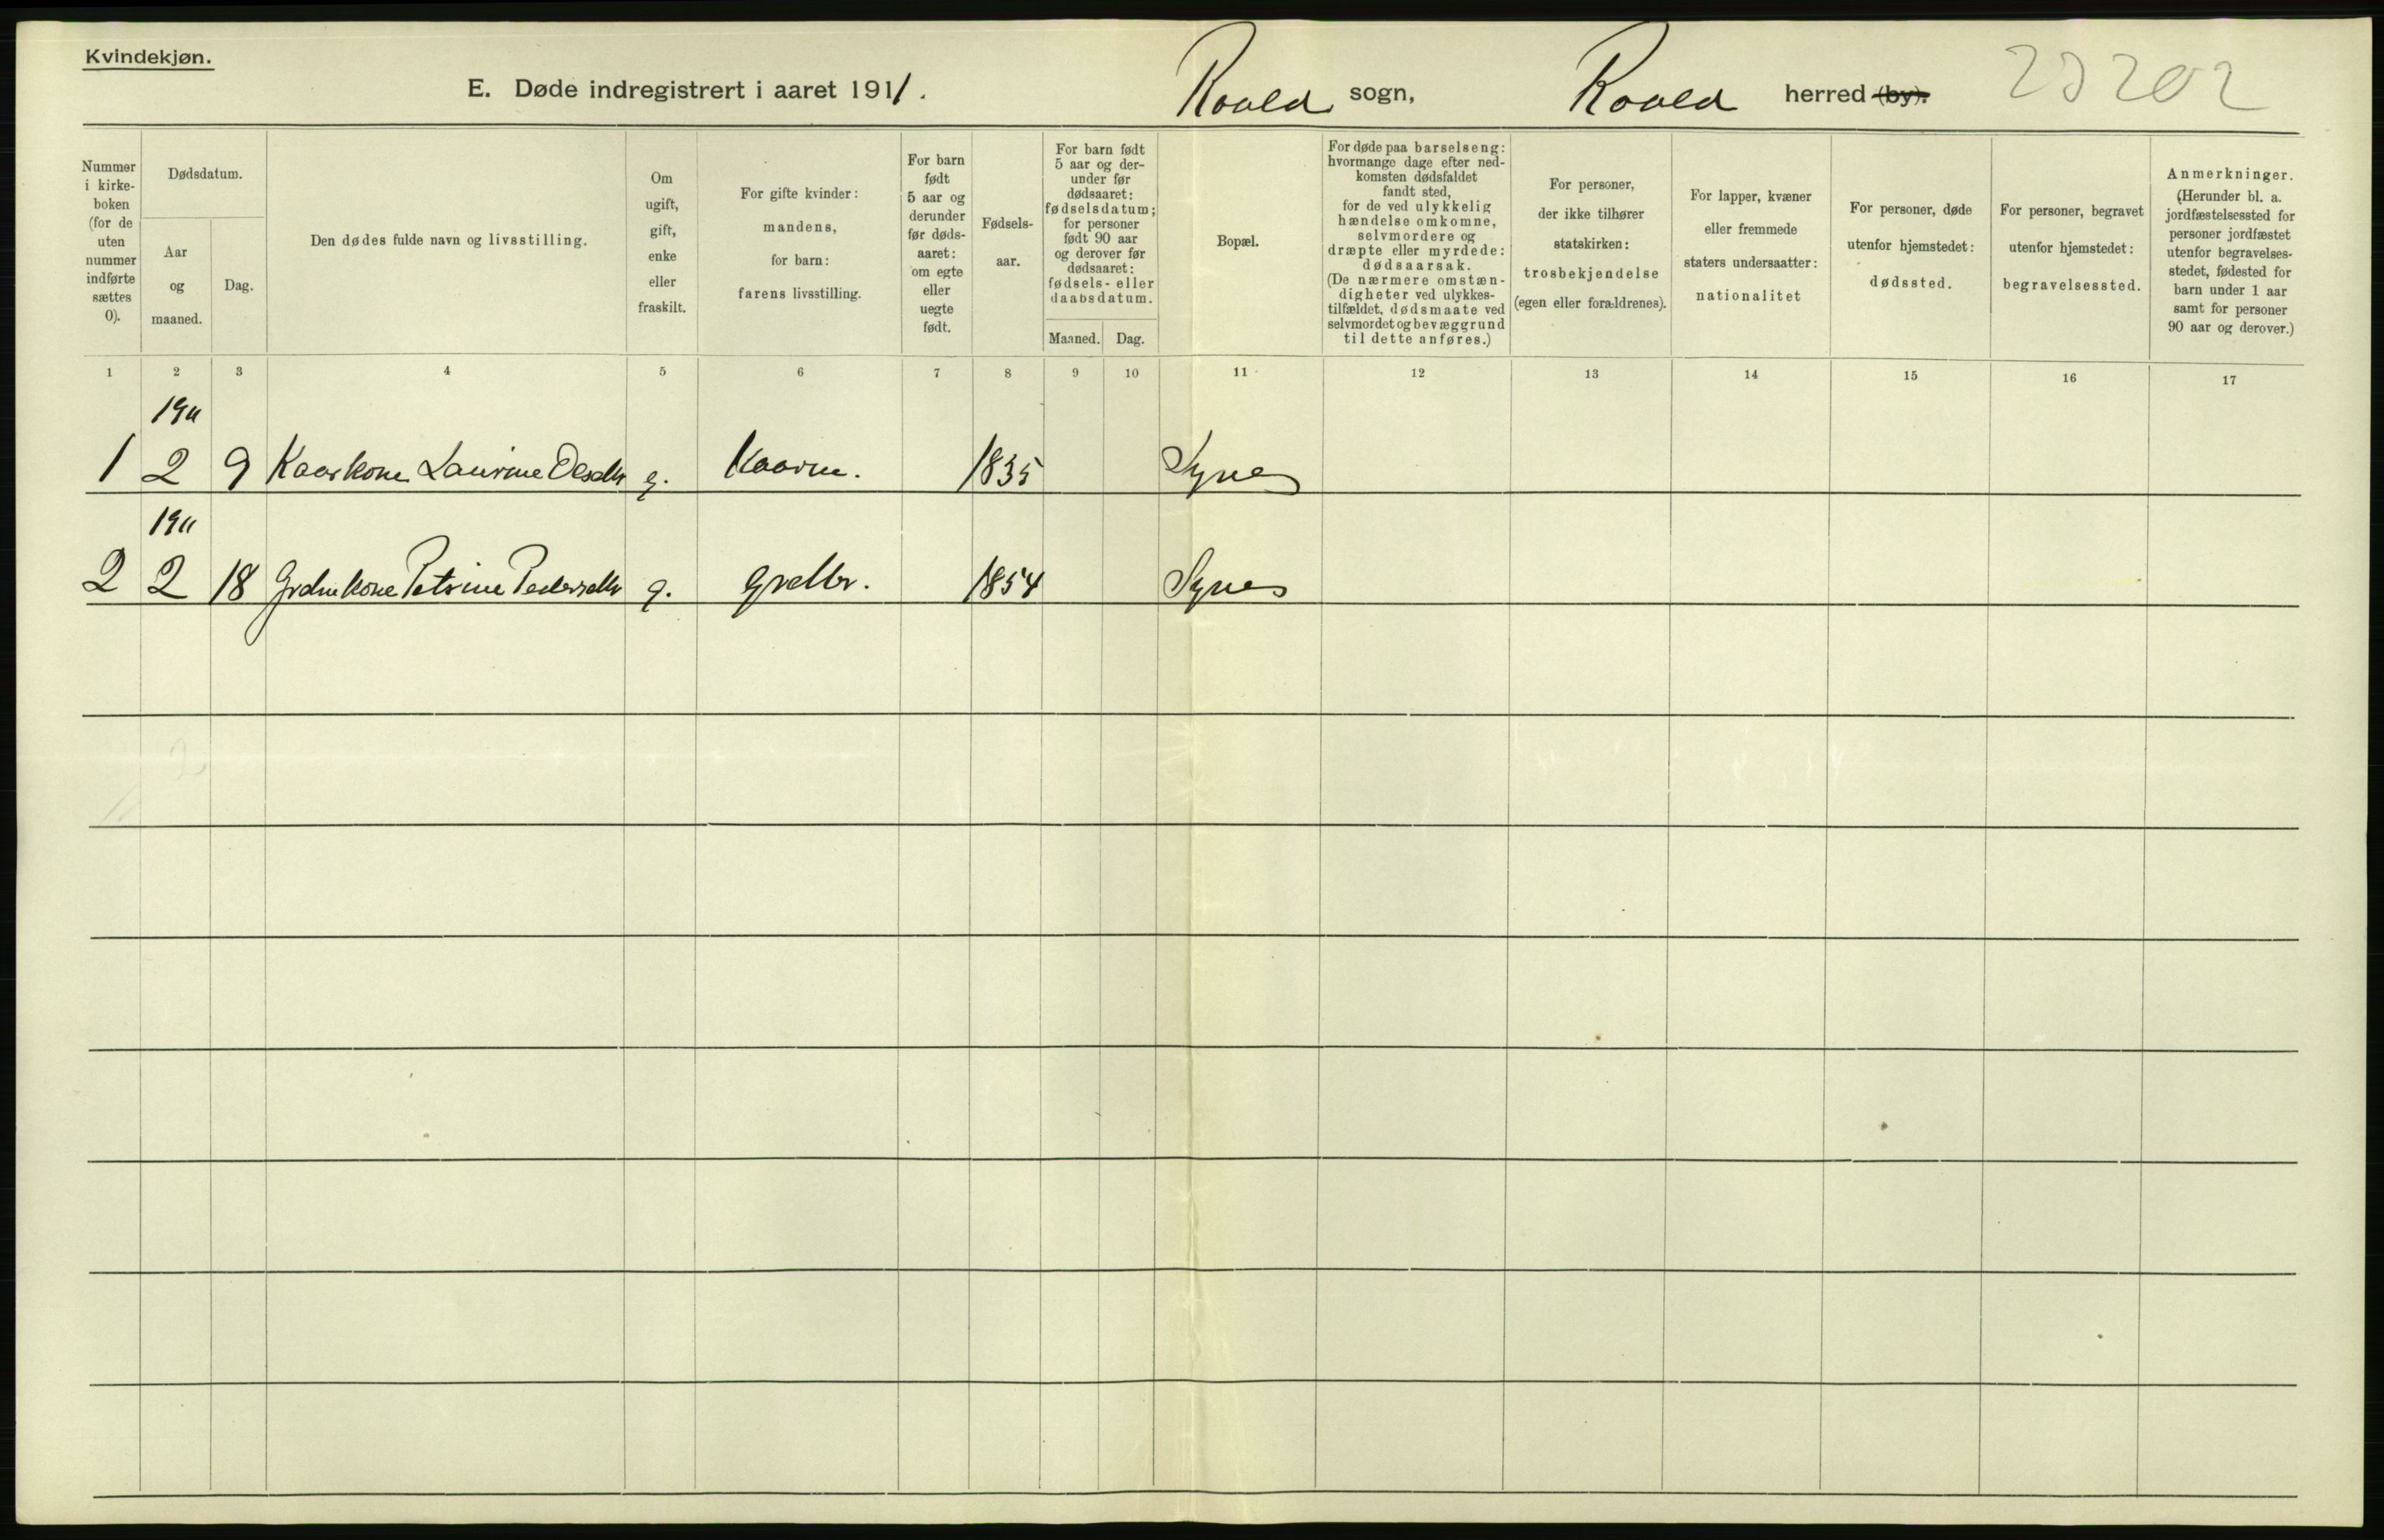 Kvindekjøn.
E. Døde indregistrert i aaret 1911. Roald sogn, Roald herred (by). 23202
Nummer i kirke-boken (for de uten nummer indførte sættes 0).
Dødsdatum.
Aar og maaned.
Dag.
Den dødes fulde navn og livsstilling.
Om ugift, gift, enke eller fraskilt.
For gifte kvinder: mandens, for barn: farens livsstilling.
For barn født 5 aar og derunder før døds-aaret: om egte eller uegte født.
Fødsels-aar.
For barn født 5 aar og der-under før dødsaaret: fødselsdatum; for personer født 90 aar og derover før dødsaaret: fødsels- eller daabsdatum.
Maaned.
Dag.
Bopæl.
For døde paa barselseng: hvormange dage efter ned-komsten dødsfaldet fandt sted, for de ved ulykkelig hændelse omkomne, selvmordere og dræpte eller myrdede: dødsaarsak. (De nærmere omstæn-digheter ved ulykkes-tilfældet, dødsmaate ved selvmordet og bevæggrund til dette anføres.)
For personer, der ikke tilhører statskirken: trosbekjendelse (egen eller forældrenes).
For lapper, kvæner eller fremmede staters undersaatter: nationalitet
For personer, døde utenfor hjemstedet: dødssted.
For personer, begravet utenfor hjemstedet: begravelsessted.
Anmerkninger. (Herunder bl. a. jordfæstelsessted for personer jordfæstet utenfor begravelses-stedet, fødested for barn under 1 aar samt for personer 90 aar og derover.)
1 2 3 4 5 6 7 8 9 10 11 12 13 14 15 16 17
1911
1 2 9 Kaarkone Laurine Olsdtr g. Kaarm. 1835 Synes
1911
2 2 18 Grdmkone Petrine Pedersdtr g. Grdbr. 1854 Synes